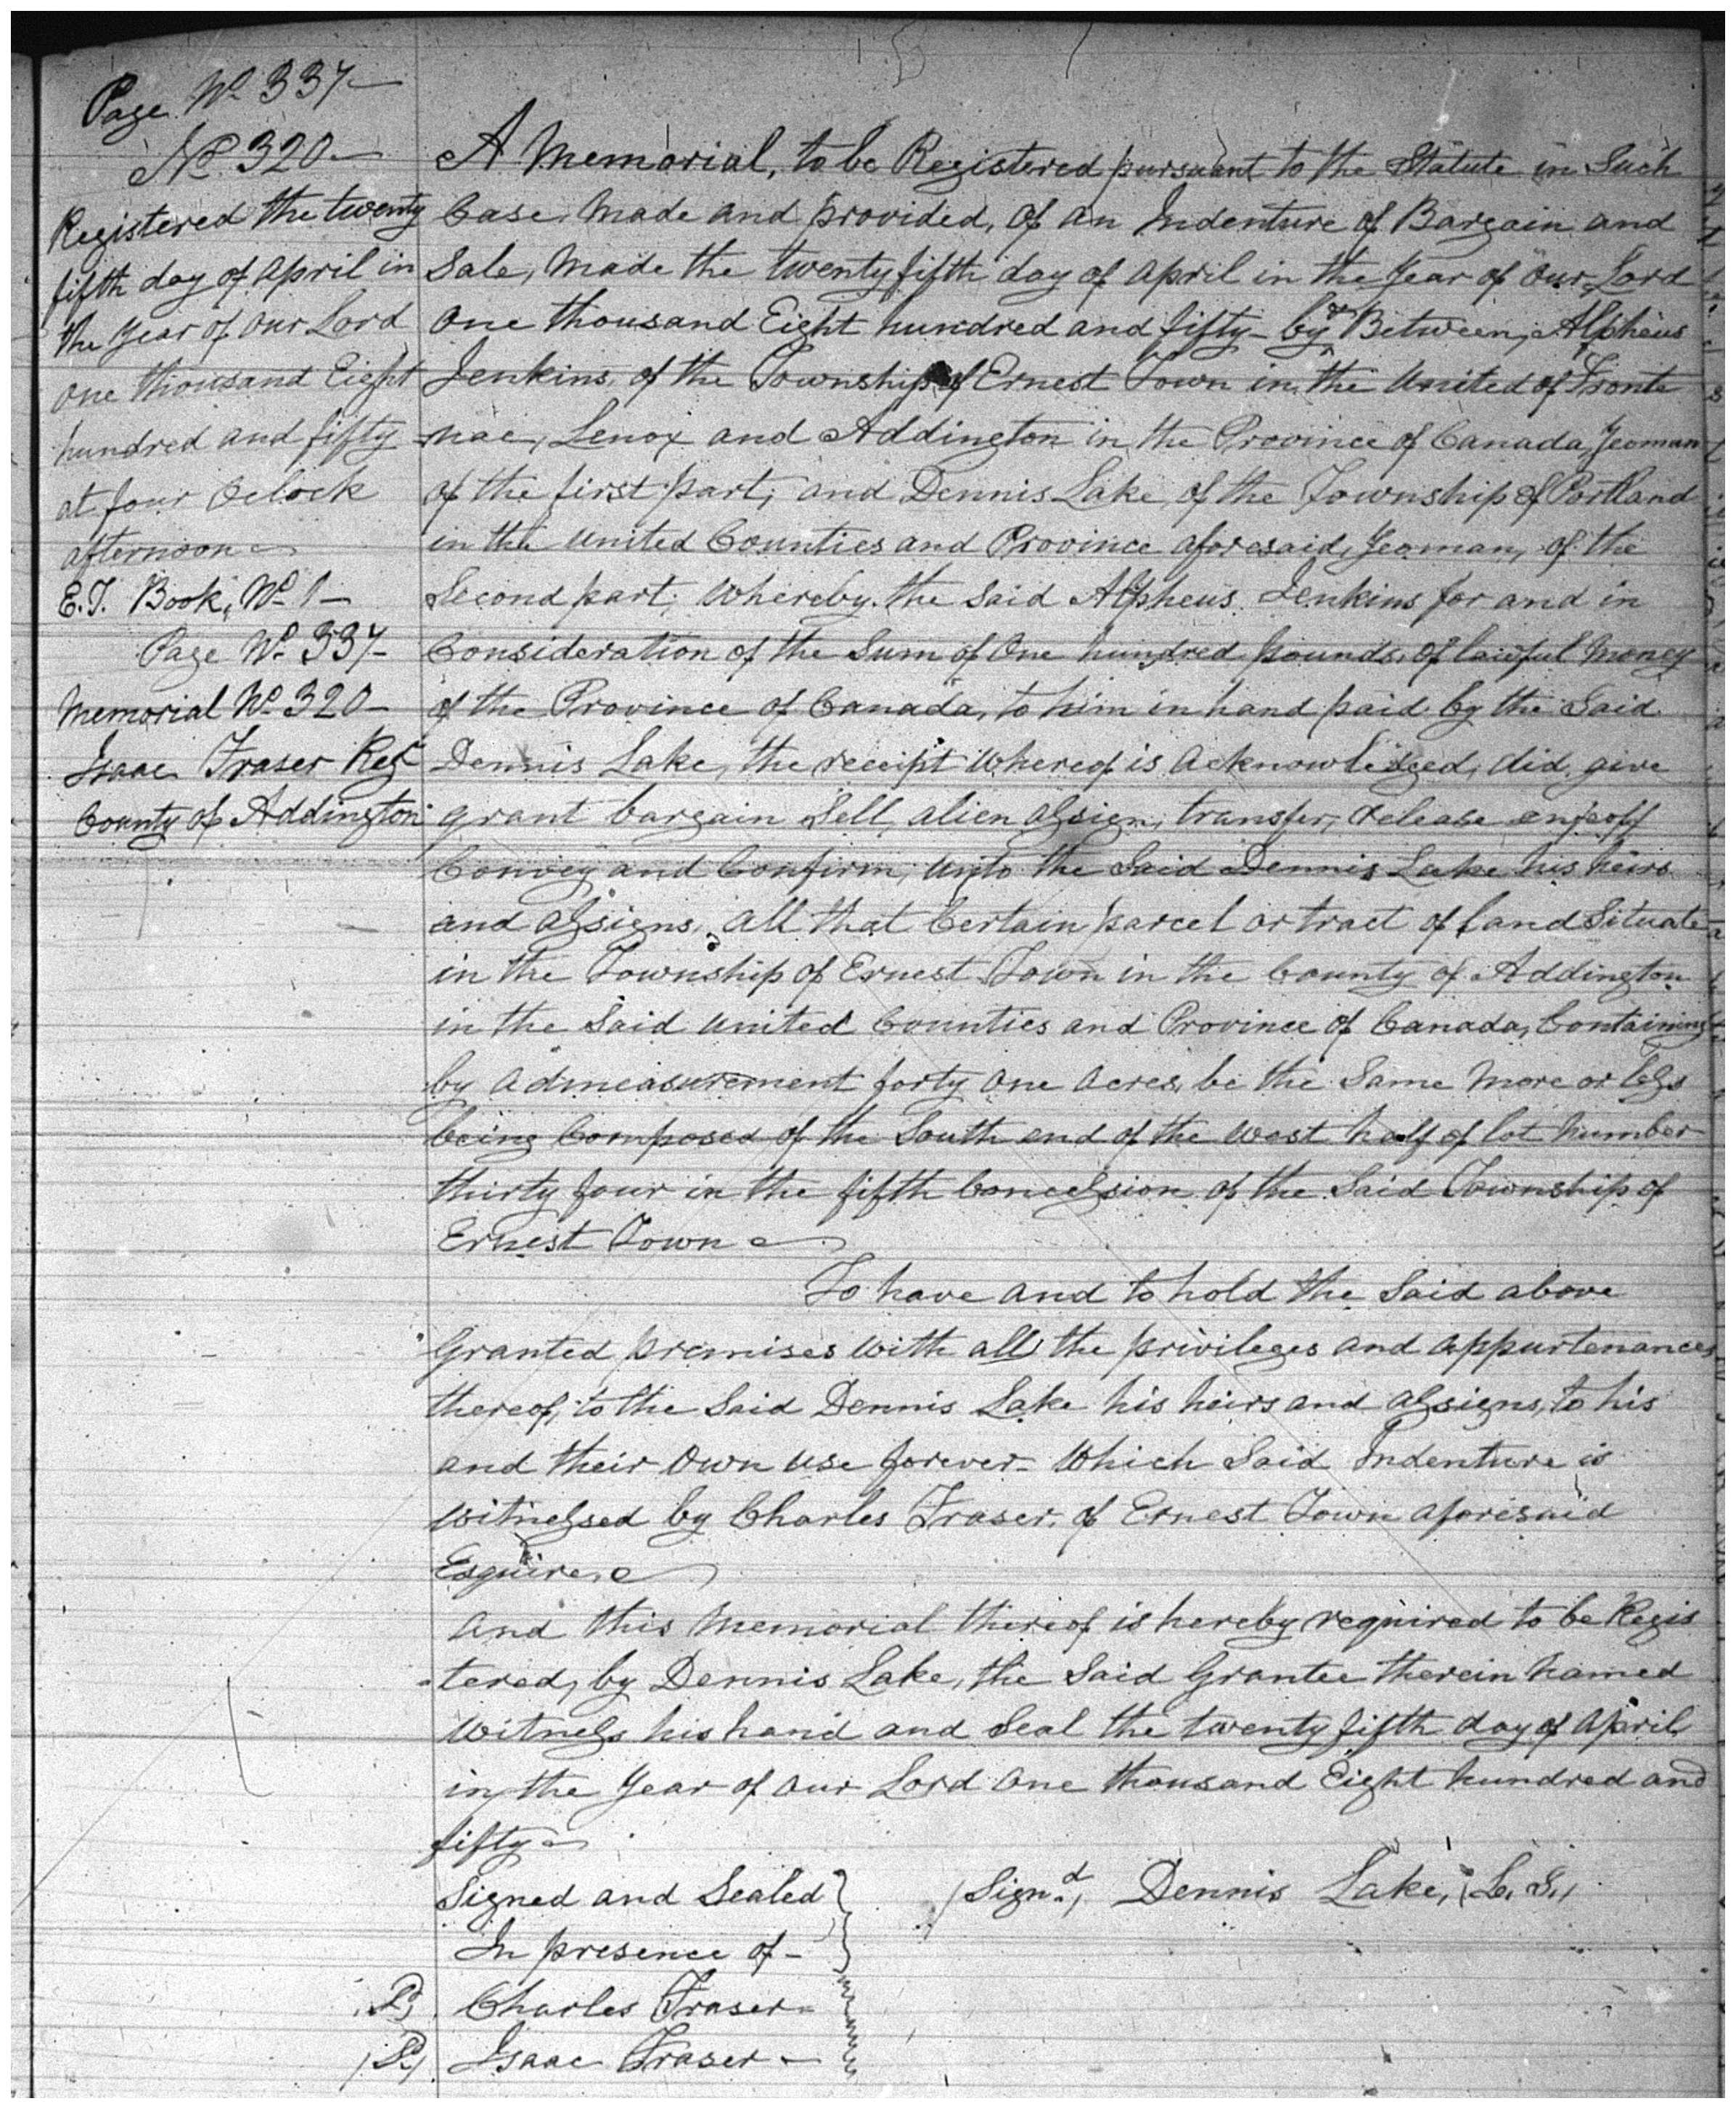 Page No 337-
No 320-
Registered the twenty
fifth day of April in
the year of our Lord
one thousand Eight
hundred and fifty
at four oclock
afternoon
E.T. Book, No 1-
Page No 337-
Memorial No 320-
Isaac Fraser Regr
County of Addington
A Memorial, to be Registered pursuant to the Statute in Such
Case, Made and provided, of an Indenture of Bargain and
Sale, Made the twenty fifth day of April in the Year of our Lord
one thousand Eight hundred and fifty- by Between, Alpheus
Jenkins, of the Township of Ernest Town in the United of Fronte
-nac, Lenox and Addington in the Province of Canada, Yeoman
of the first part; and Dennis Lake, of the Township of Portland
in the United Counties and Province aforesaid, Yeoman, of the
Second part; Whereby the Said Alpheus Jenkins for and in
Consideration of the Sum of One hundred pounds, of lawful Money
of the Province of Canada, to him in hand paid by the Said
Dennis Lake, the receipt Whereof is acknowledged, did, give
grant bargain Sell, alien assign, transfer, release enfeoff
Convey and Confirm, unto the Said Dennis Lake his heirs
and assigns, all that Certain parcel or tract of land Situate
in the Township of Ernest Town in the County of Addington
in the Said United Counties and Province of Canada, Containing
by admeasurement forty one acres, be the Same More or less
being Composed of the South end of the West half of lot Number
thirty four in the fifth Concession of the Said Township of
Ernest Town
To have and to hold the Said above
Granted premises With all the privileges and appurtenances
thereof, to the Said Dennis Lake his heirs and assigns, to his
and their own use forever- Which Said Indenture is
Witnessed by Charles Fraser, of Ernest Town aforesaid
Esquire,
And this Memorial thereof is hereby required to be Regis
-tered, by Dennis Lake, the Said Grantee therein Named
Witness his hand and Seal the twenty fifth day of April
in the Year of our Lord One thousand Eight hundred and
fifty
Signed and Sealed
In presence of-
Charles Fraser-
Isaac Fraser-
(Signd) Dennis Lake, (L. S.)